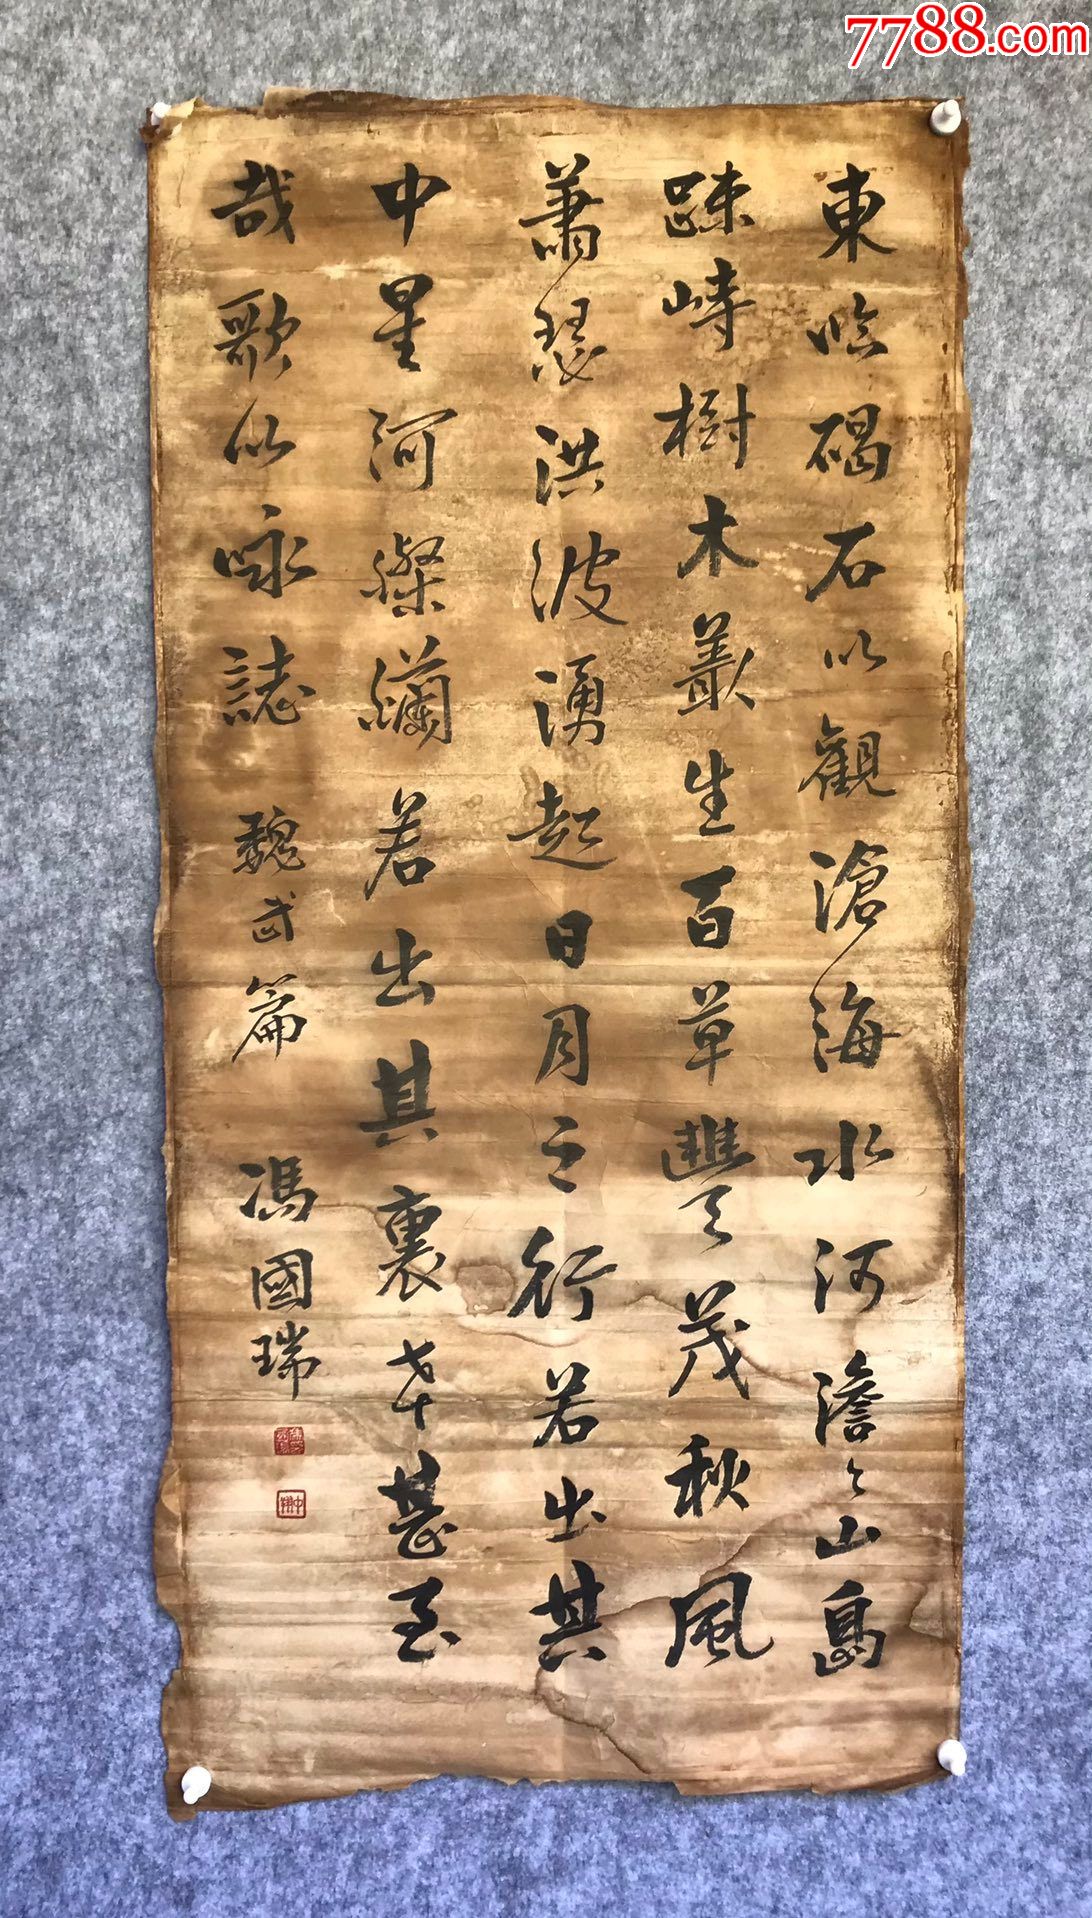 7788.com
東臨碣石以觀滄海水河澹々山島
踈峙樹木叢生百草豐茂秋風
蕭瑟洪波湧起日月之行若出其
中星河燦爛若出其裏幸甚至
哉歌以咏誌 魏武篇 馮國瑞